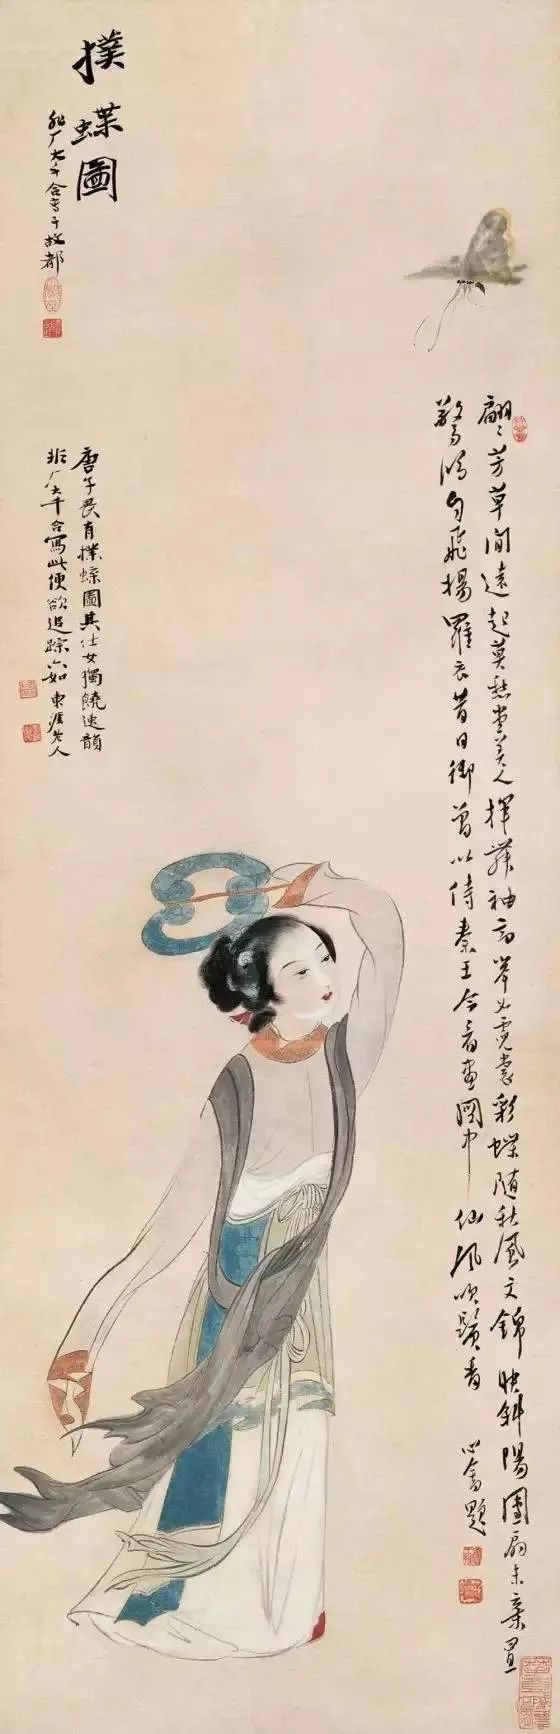 撲蝶圖
非厂大千合寫于故都
翩〻芳草間遠起莫愁堂美人揮袖高舉如霓裳彩蝶隨秋風文錦映斜陽團扇未棄置
驚鴻自飛揚羅衣昔日御曾以侍秦王今看畫圖中仙風吹鬢香 心畬題
唐子畏有撲蝶圖其仕女獨饒逸韻
非厂大千合寫此便欲追踪六如 東涯老人